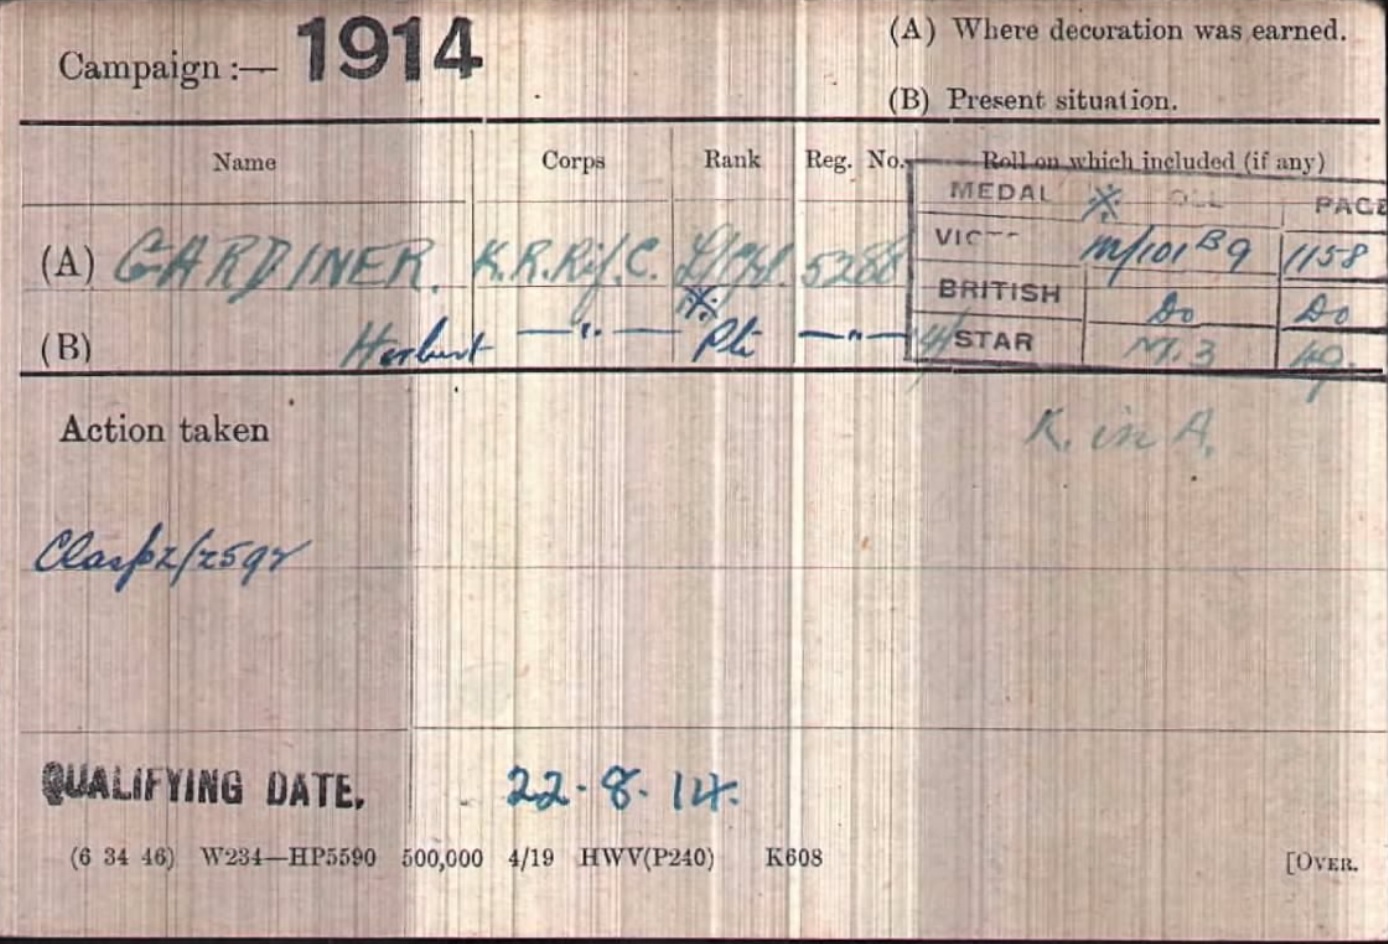 Campaign :— 1914
(A) Where decoration was earned.
(B) Present situation.
Name Corps Rank Reg. No. Roll on which included (if any)
MEDAL ※ OLL PAGE
(A) GARDINER. K.R.Rif.C. L/Cpl. 5288
VIC M/101 B9 1158
BRITISH Do Do
※
(B) Herbert —"— Pte —"—
14/STAR M.3 49.
Action taken
K. in A.
Clasp Z/2592
QUALIFYING DATE. 22.8.14.
(6 34 46) W234—HP5590 500,000 4/19 HWV(P240) K608 [OVER.